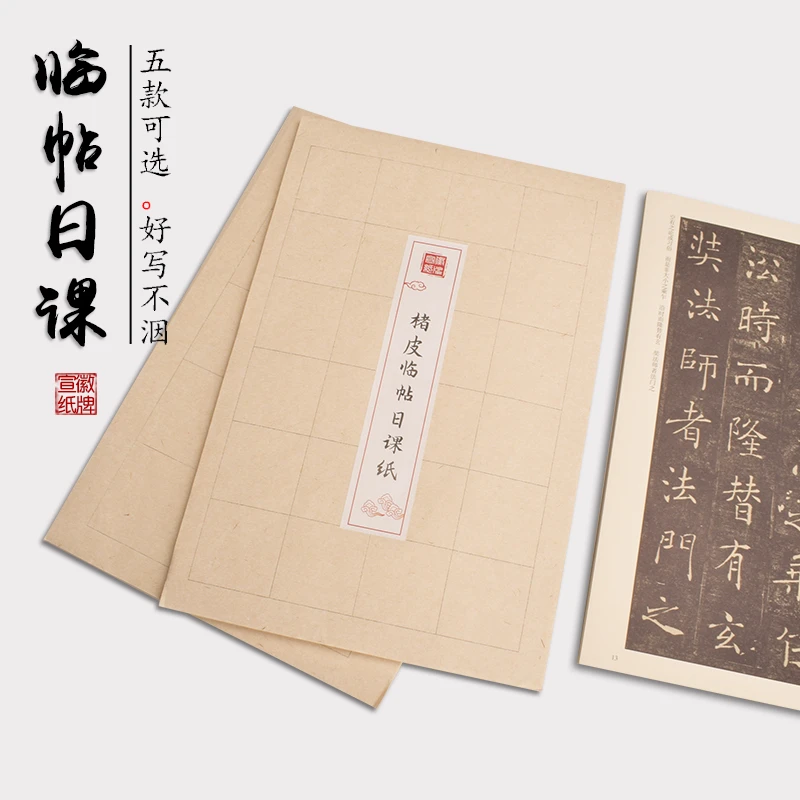 临帖日课
五款可选。好写不洇
徽牌
宣纸
徽牌
宣纸
楮皮临帖日课纸
沿時而隆替有玄
奘法師者法門之